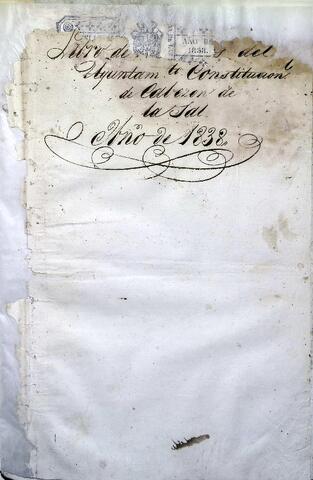 AÑO
1838.
Libro de del
Ayuntam.to Constitucion.l
de Cabezon de
la Sal
Año de 1838